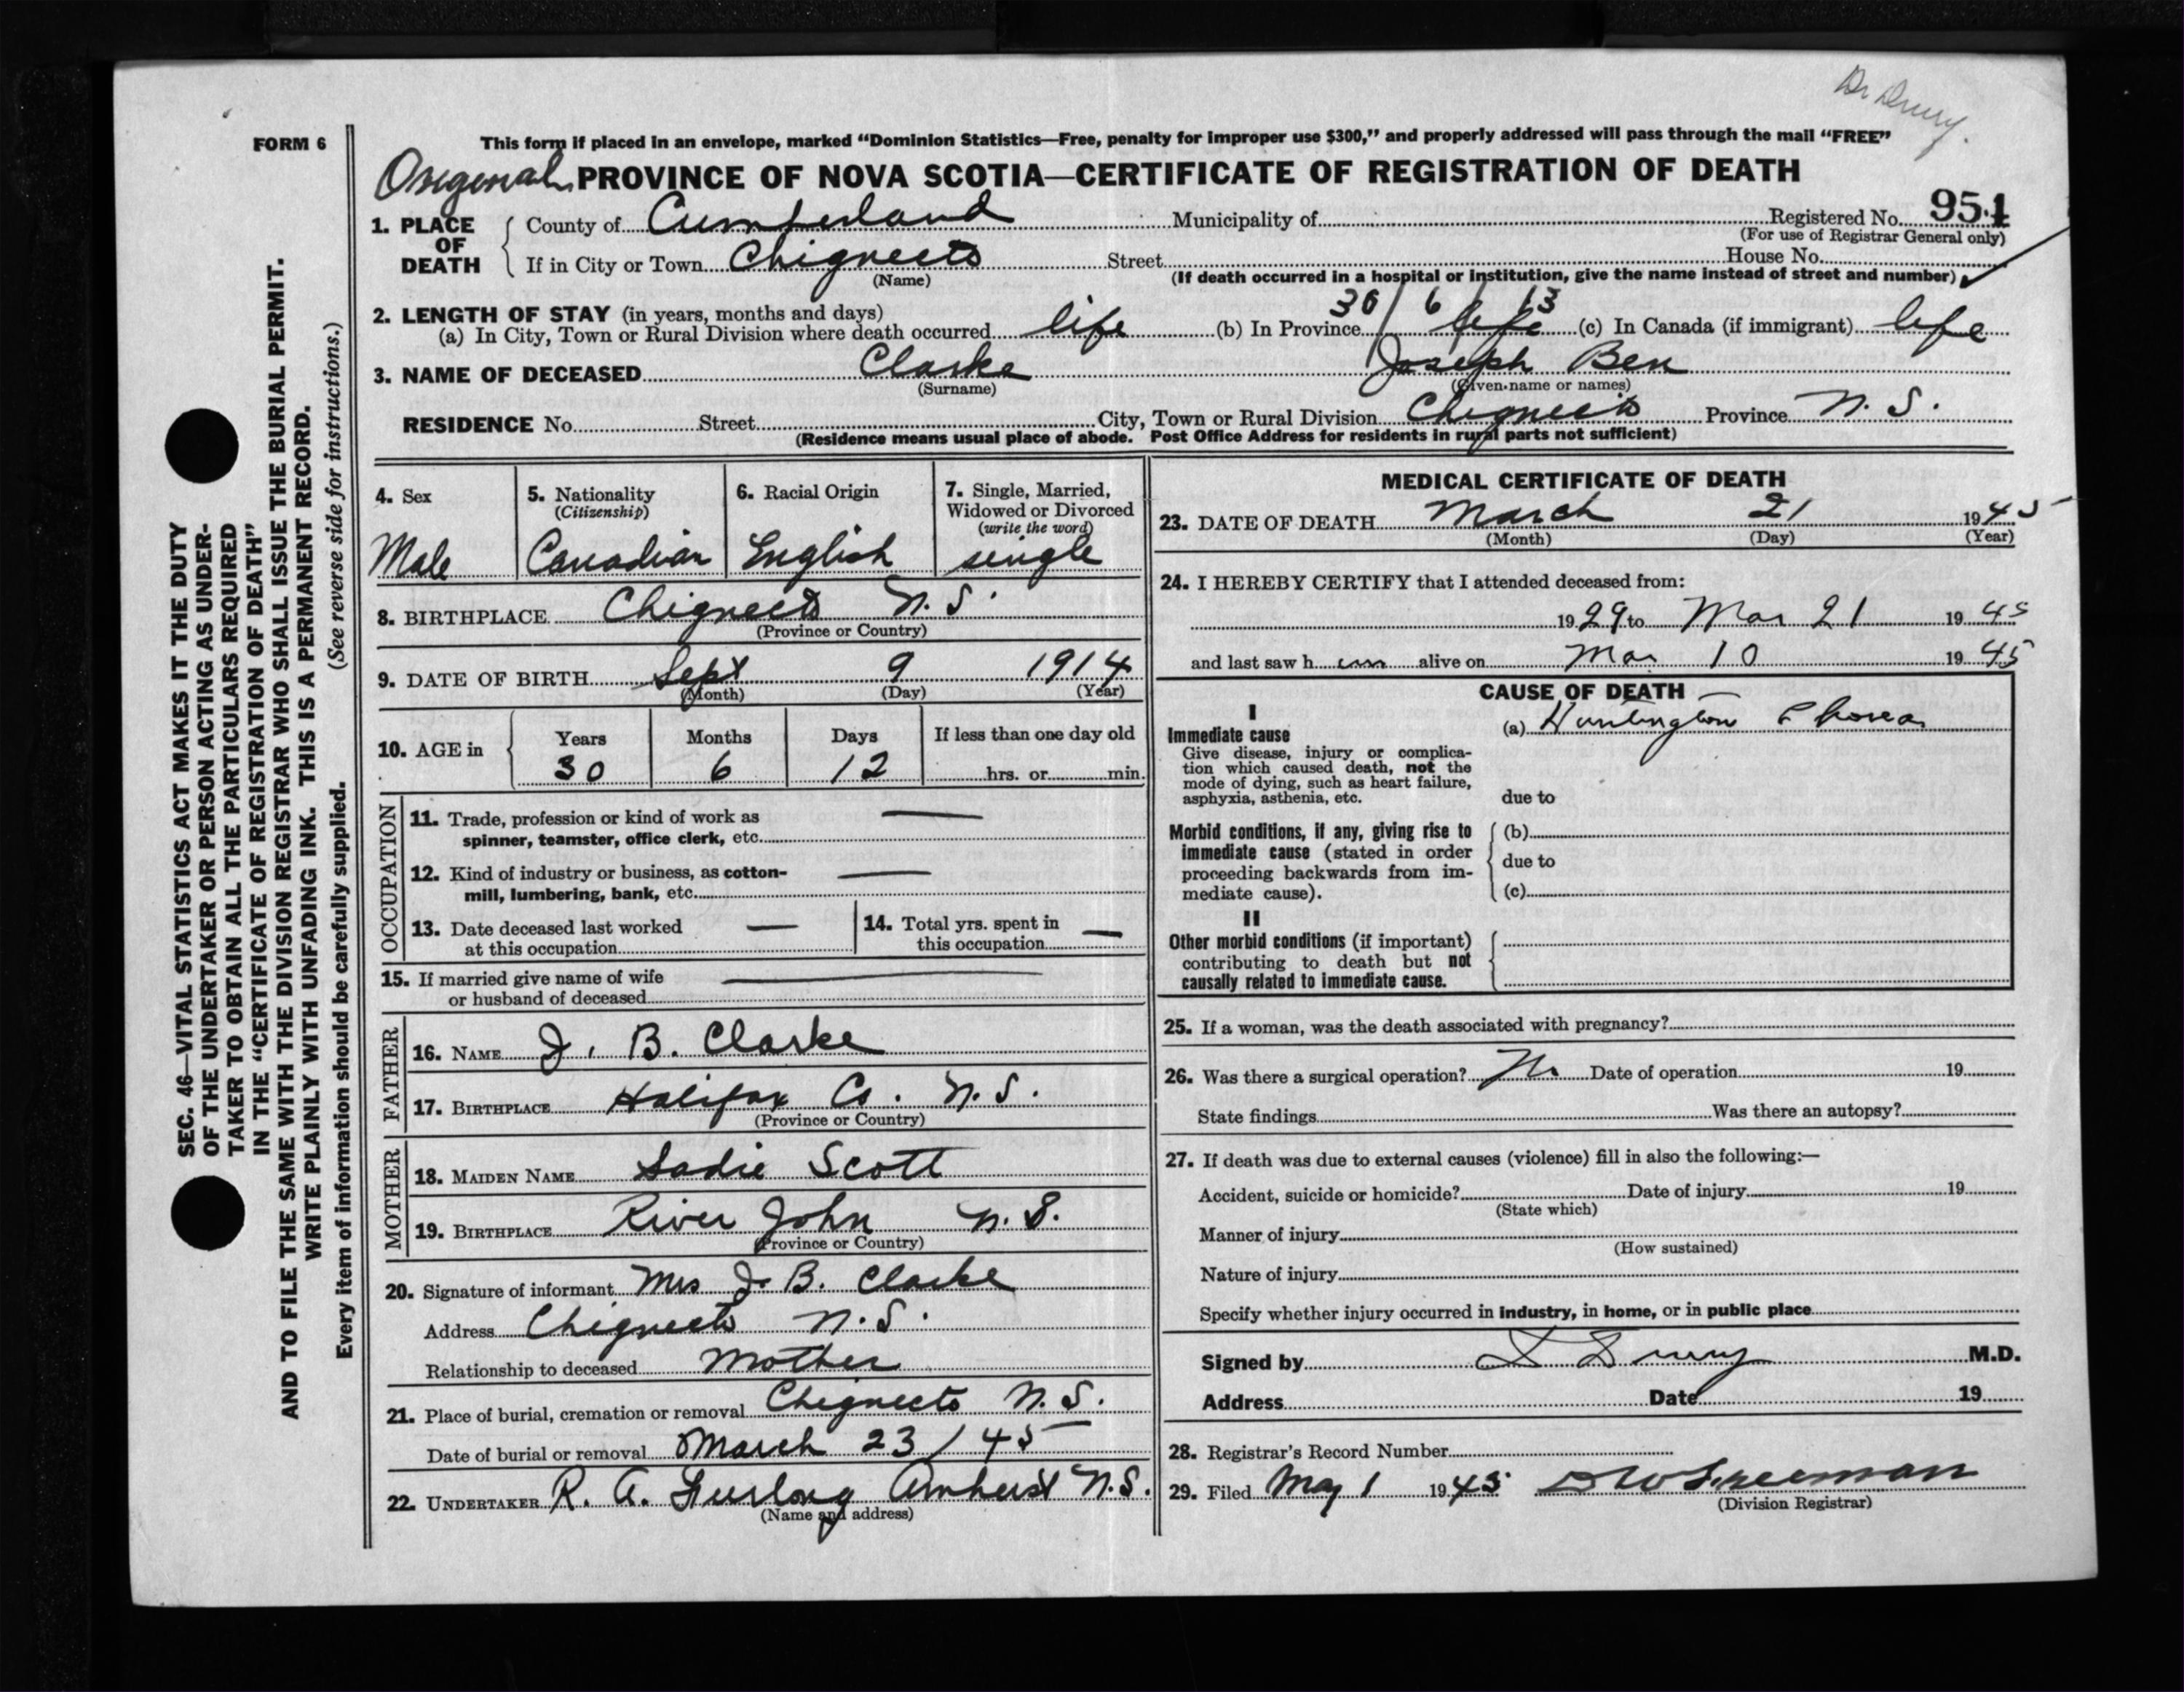 Dr Drury.
FORM 6
This form if placed in an envelope, marked “Dominion Statistics—Free, penalty for improper use $300,” and properly addressed will pass through the mail “FREE”
Original PROVINCE OF NOVA SCOTIA—CERTIFICATE OF REGISTRATION OF DEATH
1. PLACE OF DEATH County of Cumberland Municipality of Registered No. 951
(For use of Registrar General only)
If in City or Town Chignecto Street House No.
(Name) (If death occurred in a hospital or institution, give the name instead of street and number)
30 / 6 / 13
2. LENGTH OF STAY (in years, months and days)
(a) In City, Town or Rural Division where death occurred life (b) In Province life (c) In Canada (if immigrant) life
3. NAME OF DECEASED Clarke Joseph Ben
(Surname) (Given name or names)
RESIDENCE No. Street City, Town or Rural Division Chignecto Province N. S.
(Residence means usual place of abode. Post Office Address for residents in rural parts not sufficient)
4. Sex Male
5. Nationality (Citizenship) Canadian
6. Racial Origin English
7. Single, Married, Widowed or Divorced (write the word) single
8. BIRTHPLACE Chignecto N. S.
(Province or Country)
9. DATE OF BIRTH Sept 9 1914
(Month) (Day) (Year)
10. AGE in Years Months Days If less than one day old
30 6 12 hrs. or min.
OCCUPATION
11. Trade, profession or kind of work as
spinner, teamster, office clerk, etc. —
12. Kind of industry or business, as cotton-
mill, lumbering, bank, etc. —
13. Date deceased last worked
at this occupation —
14. Total yrs. spent in
this occupation —
15. If married give name of wife
or husband of deceased —
FATHER
16. NAME J. B. Clarke
17. BIRTHPLACE Halifax Co. N. S.
(Province or Country)
MOTHER
18. MAIDEN NAME Sadie Scott
19. BIRTHPLACE River John N. S.
(Province or Country)
20. Signature of informant Mrs J. B. Clarke
Address Chignecto N. S.
Relationship to deceased Mother
21. Place of burial, cremation or removal Chignecto N. S.
Date of burial or removal March 23 / 45
22. UNDERTAKER R. A. Furlong Amherst N. S.
(Name and address)
MEDICAL CERTIFICATE OF DEATH
23. DATE OF DEATH March 21 1945
(Month) (Day) (Year)
24. I HEREBY CERTIFY that I attended deceased from:
1929 to Mar 21 1945
and last saw h im alive on Mar 10 1945
CAUSE OF DEATH
I
Immediate cause
Give disease, injury or complica-
tion which caused death, not the
mode of dying, such as heart failure,
asphyxia, asthenia, etc.
(a) Huntington Chorea
due to
Morbid conditions, if any, giving rise to
immediate cause (stated in order
proceeding backwards from im-
mediate cause).
(b)
due to
(c)
II
Other morbid conditions (if important)
contributing to death but not
causally related to immediate cause.
25. If a woman, was the death associated with pregnancy?
26. Was there a surgical operation? No Date of operation 19
State findings Was there an autopsy?
27. If death was due to external causes (violence) fill in also the following:—
Accident, suicide or homicide? Date of injury 19
(State which)
Manner of injury
(How sustained)
Nature of injury
Specify whether injury occurred in industry, in home, or in public place
Signed by D Drury M.D.
Address Date 19
28. Registrar's Record Number
29. Filed May 1 1945 D W Freeman
(Division Registrar)
SEC. 46—VITAL STATISTICS ACT MAKES IT THE DUTY
OF THE UNDERTAKER OR PERSON ACTING AS UNDER-
TAKER TO OBTAIN ALL THE PARTICULARS REQUIRED
IN THE “CERTIFICATE OF REGISTRATION OF DEATH”
AND TO FILE THE SAME WITH THE DIVISION REGISTRAR WHO SHALL ISSUE THE BURIAL PERMIT.
WRITE PLAINLY WITH UNFADING INK. THIS IS A PERMANENT RECORD.
Every item of information should be carefully supplied. (See reverse side for instructions.)